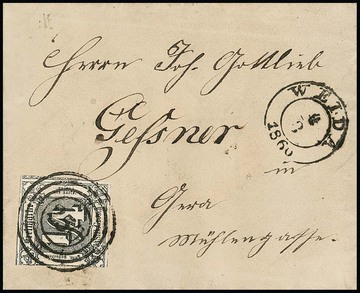 Herrn Joh. Gottlieb
Gessner
in
Gera
Mühlengasse.
WEIDA
1860